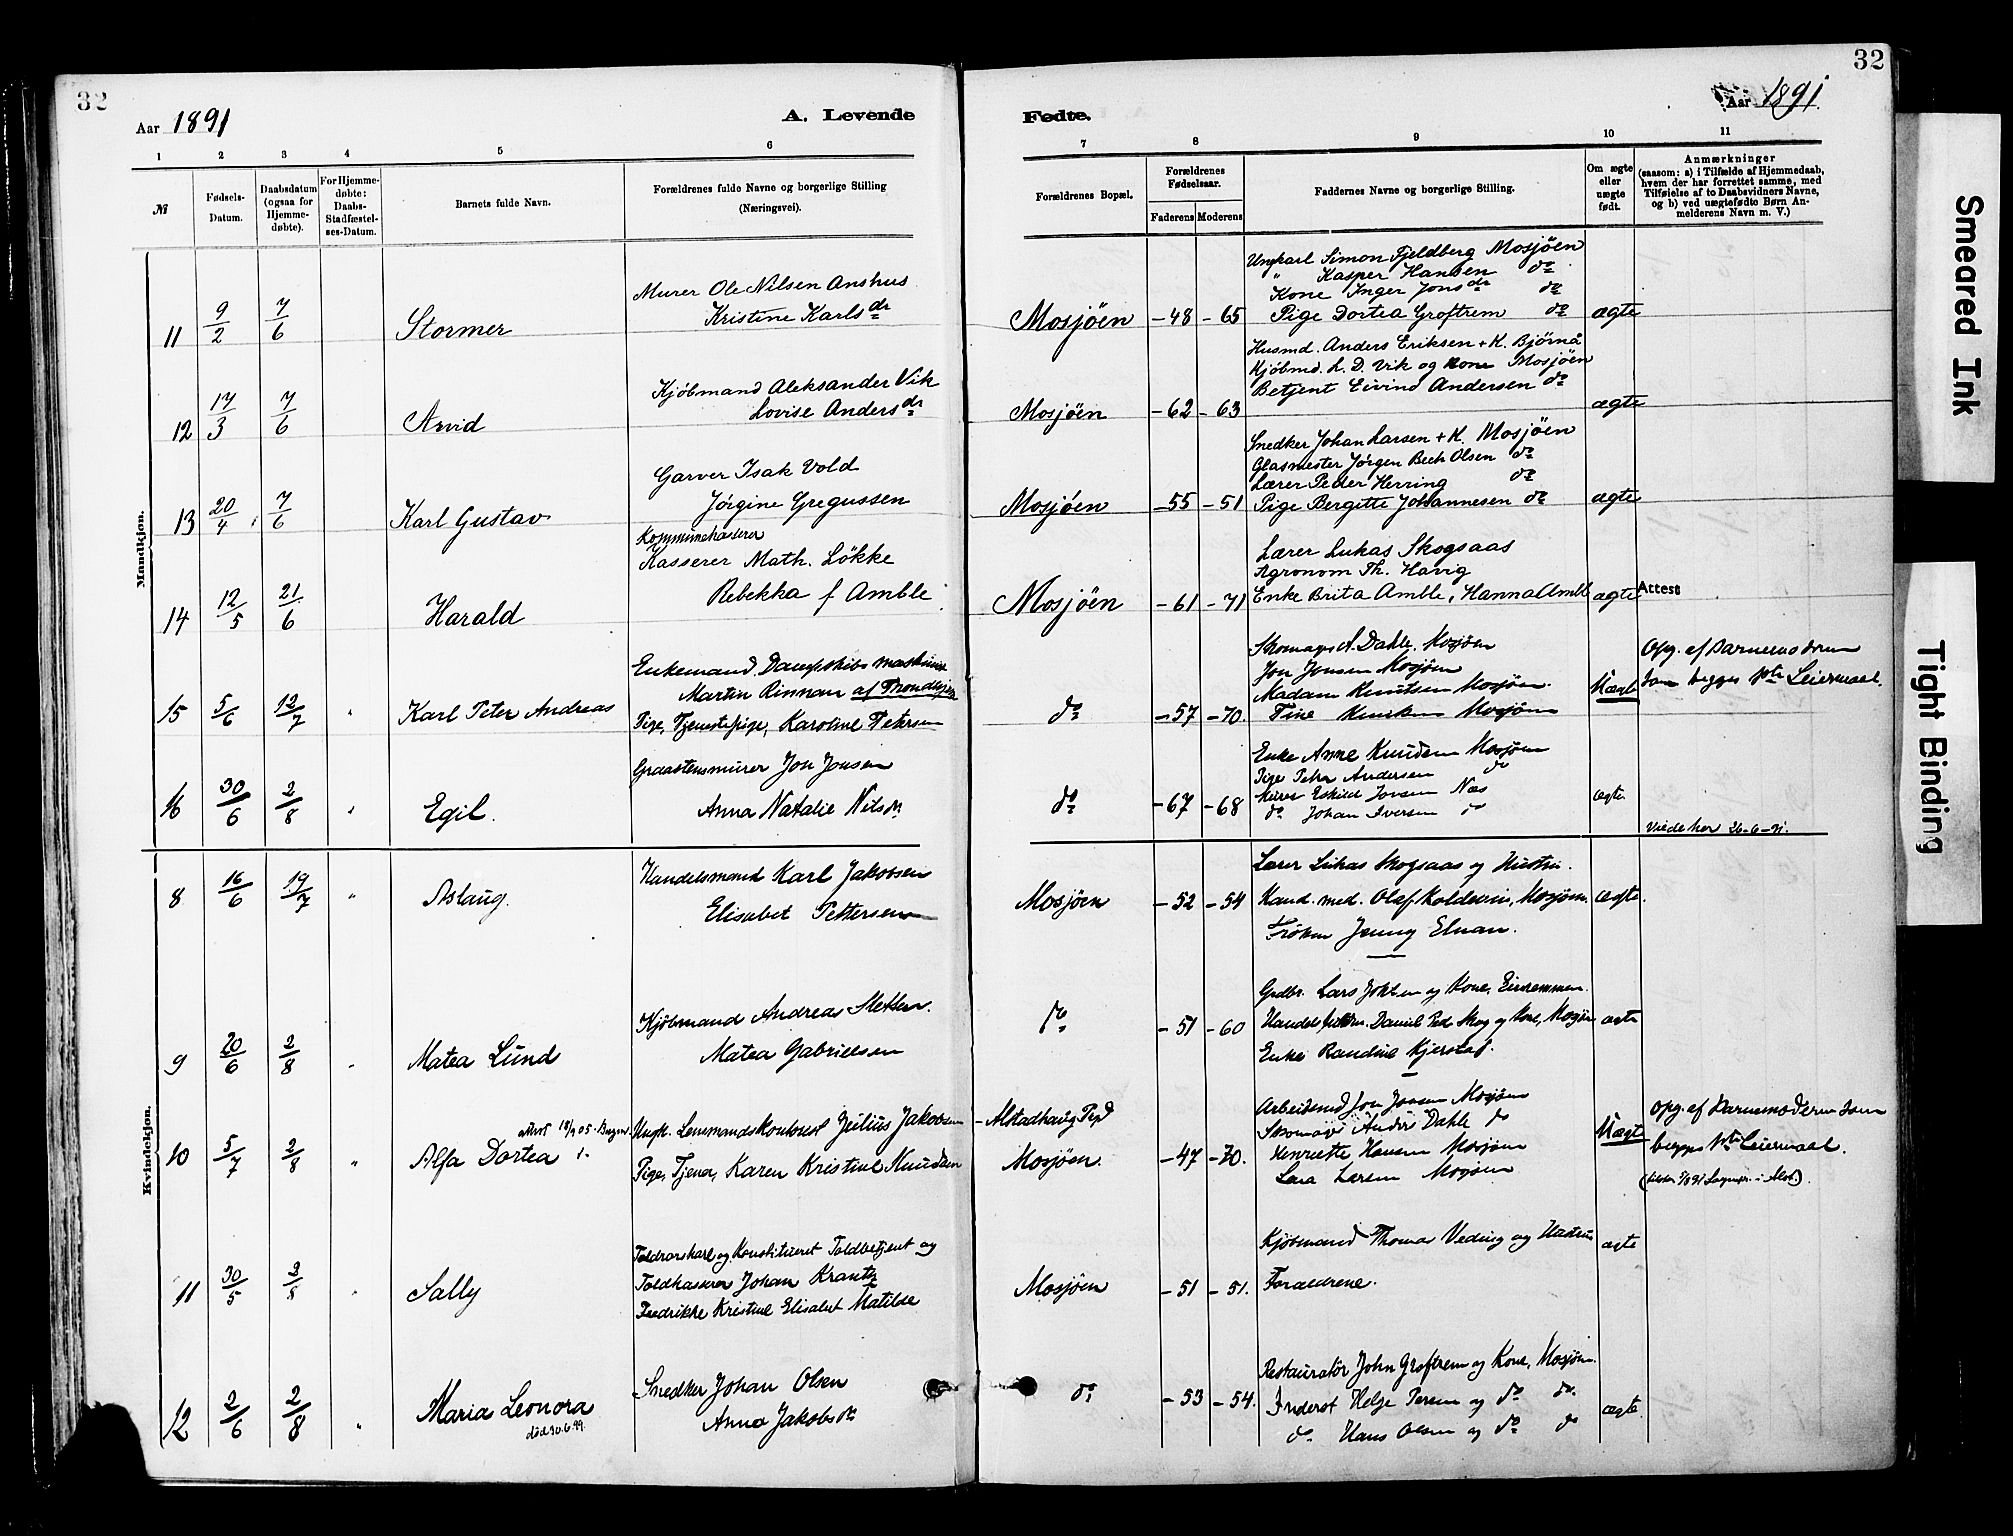 32
Aar 1891
A. Levende
1 2 3 4 5 6
№
Fødsels-Datum.
Daabsdatum (ogsaa for Hjemme-døbte).
For Hjemme-døbte: Daabs-Stadfæstel-ses-Datum.
Barnets fulde Navn.
Forældrenes fulde Navne og borgerlige Stilling (Næringsvei).
32
Fødte.
Aar 1891.
7 8 9 10 11
Forældrenes Bopæl.
Forældrenes Fødselsaar.
Faderens Moderens
Faddernes Navne og borgerlige Stilling.
Om ægte eller uægte født.
Anmærkninger
(saasom: a) i Tilfælde af Hjemmedaab,
hvem der har forrettet samme, med
Tilføielse af to Daabsvidners Navne,
og b) ved uægtefødte Børn An-
melderens Navn m. V.)
Mandkjøn.
11 9/2 7/6 Stormer
Murer Ole Nilsen Anshus
Kristine Karlsdr
Mosjöen -48 -65
Ungkarl Simon Fjeldberg Mosjöen
" Kasper Hansen do
Kone Inger Jonsdr do
Pige Dortea Groftrem do
ægte
12 17/3 7/6 Arvid
Kjöbmand Aleksander Vik
Lovise Andersdr
Mosjöen -62 -63
Husmd. Anders Eriksen + K. Björnå
Kjöbmd. L. D. Vik og kone Mosjöen
Betjent Eivind Andersen do
ægte
13 20/4 7/6 Karl Gustav
Garver Isak Vold
Jörgine Gregussen
Mosjöen -55 -51
Snedker Johan Larsen + K. Mosjöen
Glasmester Jörgen Bech Olsen do
Lærer Peder Herring do
Pige Bergitte Johannesen do
ægte
14 12/5 21/6 Harald
Kommunekasserer
Kasserer Math. Lökke
Rebekka f Amble
Mosjöen -61 -71
Lærer Lukas Skogsaas
Agronom Th. Havig
Enke Brita Amble, Hanna Amble
ægte Attest
15 5/6 12/7 " Karl Peter Andreas
Enkemand, Dampskibs maskinist
Martin Rinnan af Trondhjem
Pige, Tjenestepige, Karoline Petersen
do -57 -70.
Skomager A. Dahle, Mosjöen
Jon Jonsen Mosjöen
Madam Knutsen Mosjöen.
Tine Mosjöen
Uægte
Opg. af Barnemoderen
som begges 1ste Leiermaal.
16 30/6 2/8 " Egil.
Graastensmurer Jon Jonsen
Anna Natalie Nilsdr
do -67 -68
Enke Anne Knudsen Mosjöen
Pige Petra Andersen do
Murer Eskild Jonsen Næs
do Johan Iversen do
ægte.
Viede her 26-6-91.
Kvindekjøn.
8 16/6 19/7 " Aslaug.
Handelsmand Karl Jakobsen
Elisabet Pettersen
Mosjöen -52 -54
Lærer Lukas Skogsaas og Hustru.
Kand. med. Olaf Koldevin, Mosjöen.
Fröken Jenny Elnan.
ægte.
9 20/6 2/8 " Matea Lund
Kjöbmand Andreas
Matea Gabrielsen
do -51 -60
Grdbr. Lars og Kone,
Daniel Ped. Skog og Kone, Mosjöen
Enke Randine Kjerstad.
ægte
10 5/7 2/8 " Alfa Dortea
Ungk. Lensmandskontorist Julius Jakobsen
Pige, Tjener, Karen Kristine Knudsen
Alstadhaug Pgd
Mosjöen. -47 -70.
Arbeidsmd Jon Jonsen Mosjöen
Skomager Andr. Dahle do
Henriette Hansen Mosjöen
Lena Larsen Mosjöen
Uægte
Opg. af Barnemoderen som
begges 1ste Leiermaal.
11 30/5 2/8 " Sally
Toldrorskarl og Konstitueret Toldbetjent og
Toldkasserer Johan Krantz
Fredrikke Kristine Elisabet Matilde
Mosjöen -51 -51.
Kjöbmand Thomas Veding og Hustru
Forældrene.
ægte
12 2/6 2/8 " Maria Leonora
död 30.6.99.
Snedker Johan Olsen
Anna Jakobsdr
do -53 -54.
Restauratör John Groftrem og Kone, Mosjöen.
Inderst Helge Persen og do do.
do Hans Olsen og do do
ægte.
Smeared Ink
Tight Binding